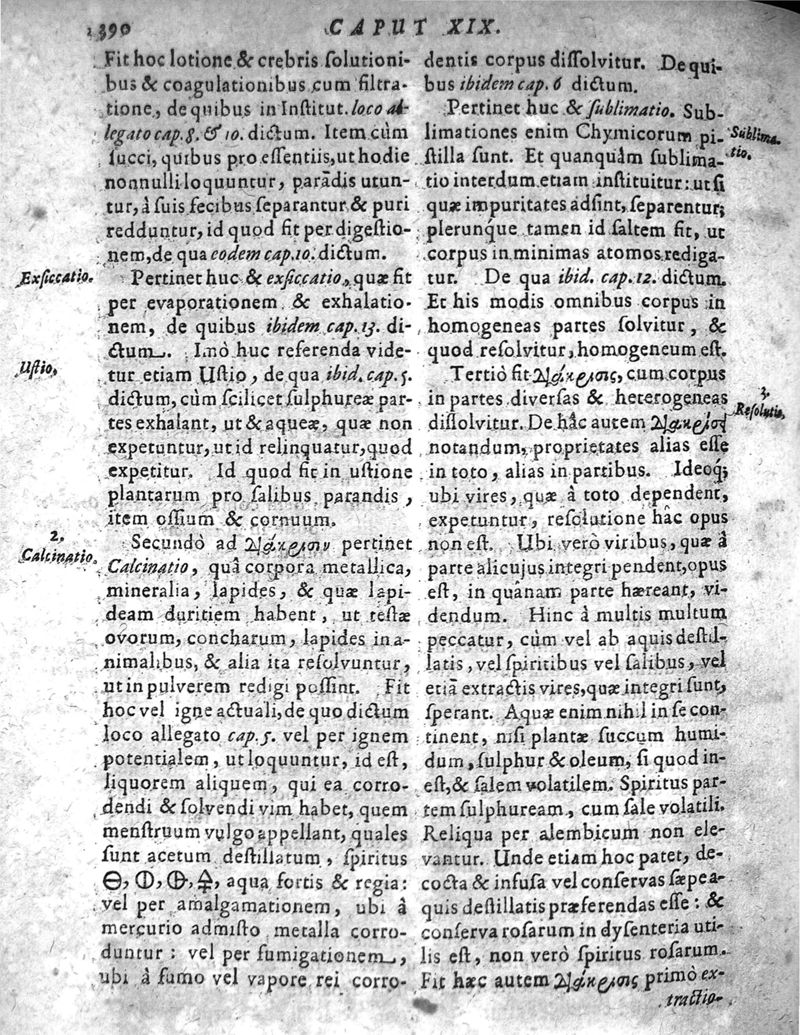 390
CAPUT XIX.
Fit hoc lotione & crebris ſolutioni-
bus & coagulationibus cum filtra-
tione, de quibus in Inſtitut. loco al-
legato cap. 8. & 10. dictum. Item cùm
ſucci, quibus pro eſſentiis, ut hodie
nonnulli loquuntur, parãdis utun-
tur, à ſuis fecibus ſeparantur & puri
redduntur, id quod fit per digeſtio-
nem, de qua eodem cap. 10. dictum.
Exſiccatio.
Pertinet huc & exſiccatio, quæ fit
per evaporationem & exhalatio-
nem, de quibus ibidem cap. 13. di-
ctum. Imò huc referenda vide-
Uſtio,
tur etiam Uſtio, de qua ibid. cap. 5.
dictum, cùm ſcilicet ſulphureæ par-
tes exhalant, ut & aqueæ, quæ non
expetuntur, ut id relinquatur, quod
expetitur. Id quod fit in uſtione
plantarum pro ſalibus parandis,
item oſſium & cornuum.
2,
Calcinatio.
Secundò ad διάκρισιν pertinet
Calcinatio, quâ corpora metallica,
mineralia, lapides, & quæ lapi-
deam duritiem habent, ut teſtæ
ovorum, concharum, lapides in a-
nimalibus, & alia ita reſolvuntur,
ut in pulverem redigi poſſint. Fit
hoc vel igne actuali, de quo dictum
loco allegato cap. 5. vel per ignem
potentialem, ut loquuntur, id eſt,
liquorem aliquem, qui ea corro-
dendi & ſolvendi vim habet, quem
menſtruum vulgo appellant, quales
ſunt acetum deſtillatum, ſpiritus
aqua fortis & regia:
vel per amalgamationem, ubi à
mercurio admiſto metalla corro-
duntur: vel per fumigationem,
ubi à fumo vel vapore rei corro-
dentis corpus diſſolvitur. De qui-
bus ibidem cap. 6 dictum.
Pertinet huc & ſublimatio. Sub-
Sublima-
tio.
limationes enim Chymicorum pi-
ſtilla ſunt. Et quanquàm ſublima-
tio interdum etiam inſtituitur: ut ſi
quæ impuritates adſint, ſeparentur;
plerunque tamen id ſaltem fit, ut
corpus in minimas atomos rediga-
tur. De qua ibid. cap. 12. dictum.
Et his modis omnibus corpus in
homogeneas partes ſolvitur, &
quod reſolvitur, homogeneum eſt.
3,
Reſolutio,
Tertiò fit διάκρισις, cum corpus
in partes diverſas & heterogeneas
diſſolvitur. De hâc autem διακρίσει
notandum, proprietates alias eſſe
in toto, alias in partibus. Ideoq́;
ubi vires, quæ â toto dependent,
expetuntur, reſolutione hâc opus
non eſt. Ubi verò viribus, quæ à
parte alicujus integri pendent, opus
eſt, in quânam parte hæreant, vi-
dendum. Hinc à multis multum
peccatur, cùm vel ab aquis deſtil-
latis, vel ſpiritibus vel ſalibus, vel
etiã extractis vires, quæ integri ſunt,
ſperant. Aquæ enim nihil in ſe con-
tinent, niſi plantæ ſuccum humi-
dum, ſulphur & oleum, ſi quod in-
eſt, & ſalem volatilem. Spiritus par-
tem ſulphuream, cum ſale volatili.
Reliqua per alembicum non ele-
vantur. Unde etiam hoc patet, de-
cocta & infuſa vel conſervas ſæpe a-
quis deſtillatis præferendas eſſe: &
conſerva roſarum in dyſenteria uti-
lis eſt, non verò ſpiritus roſarum.
Fit hæc autem διάκρισις primò ex-
tractio-